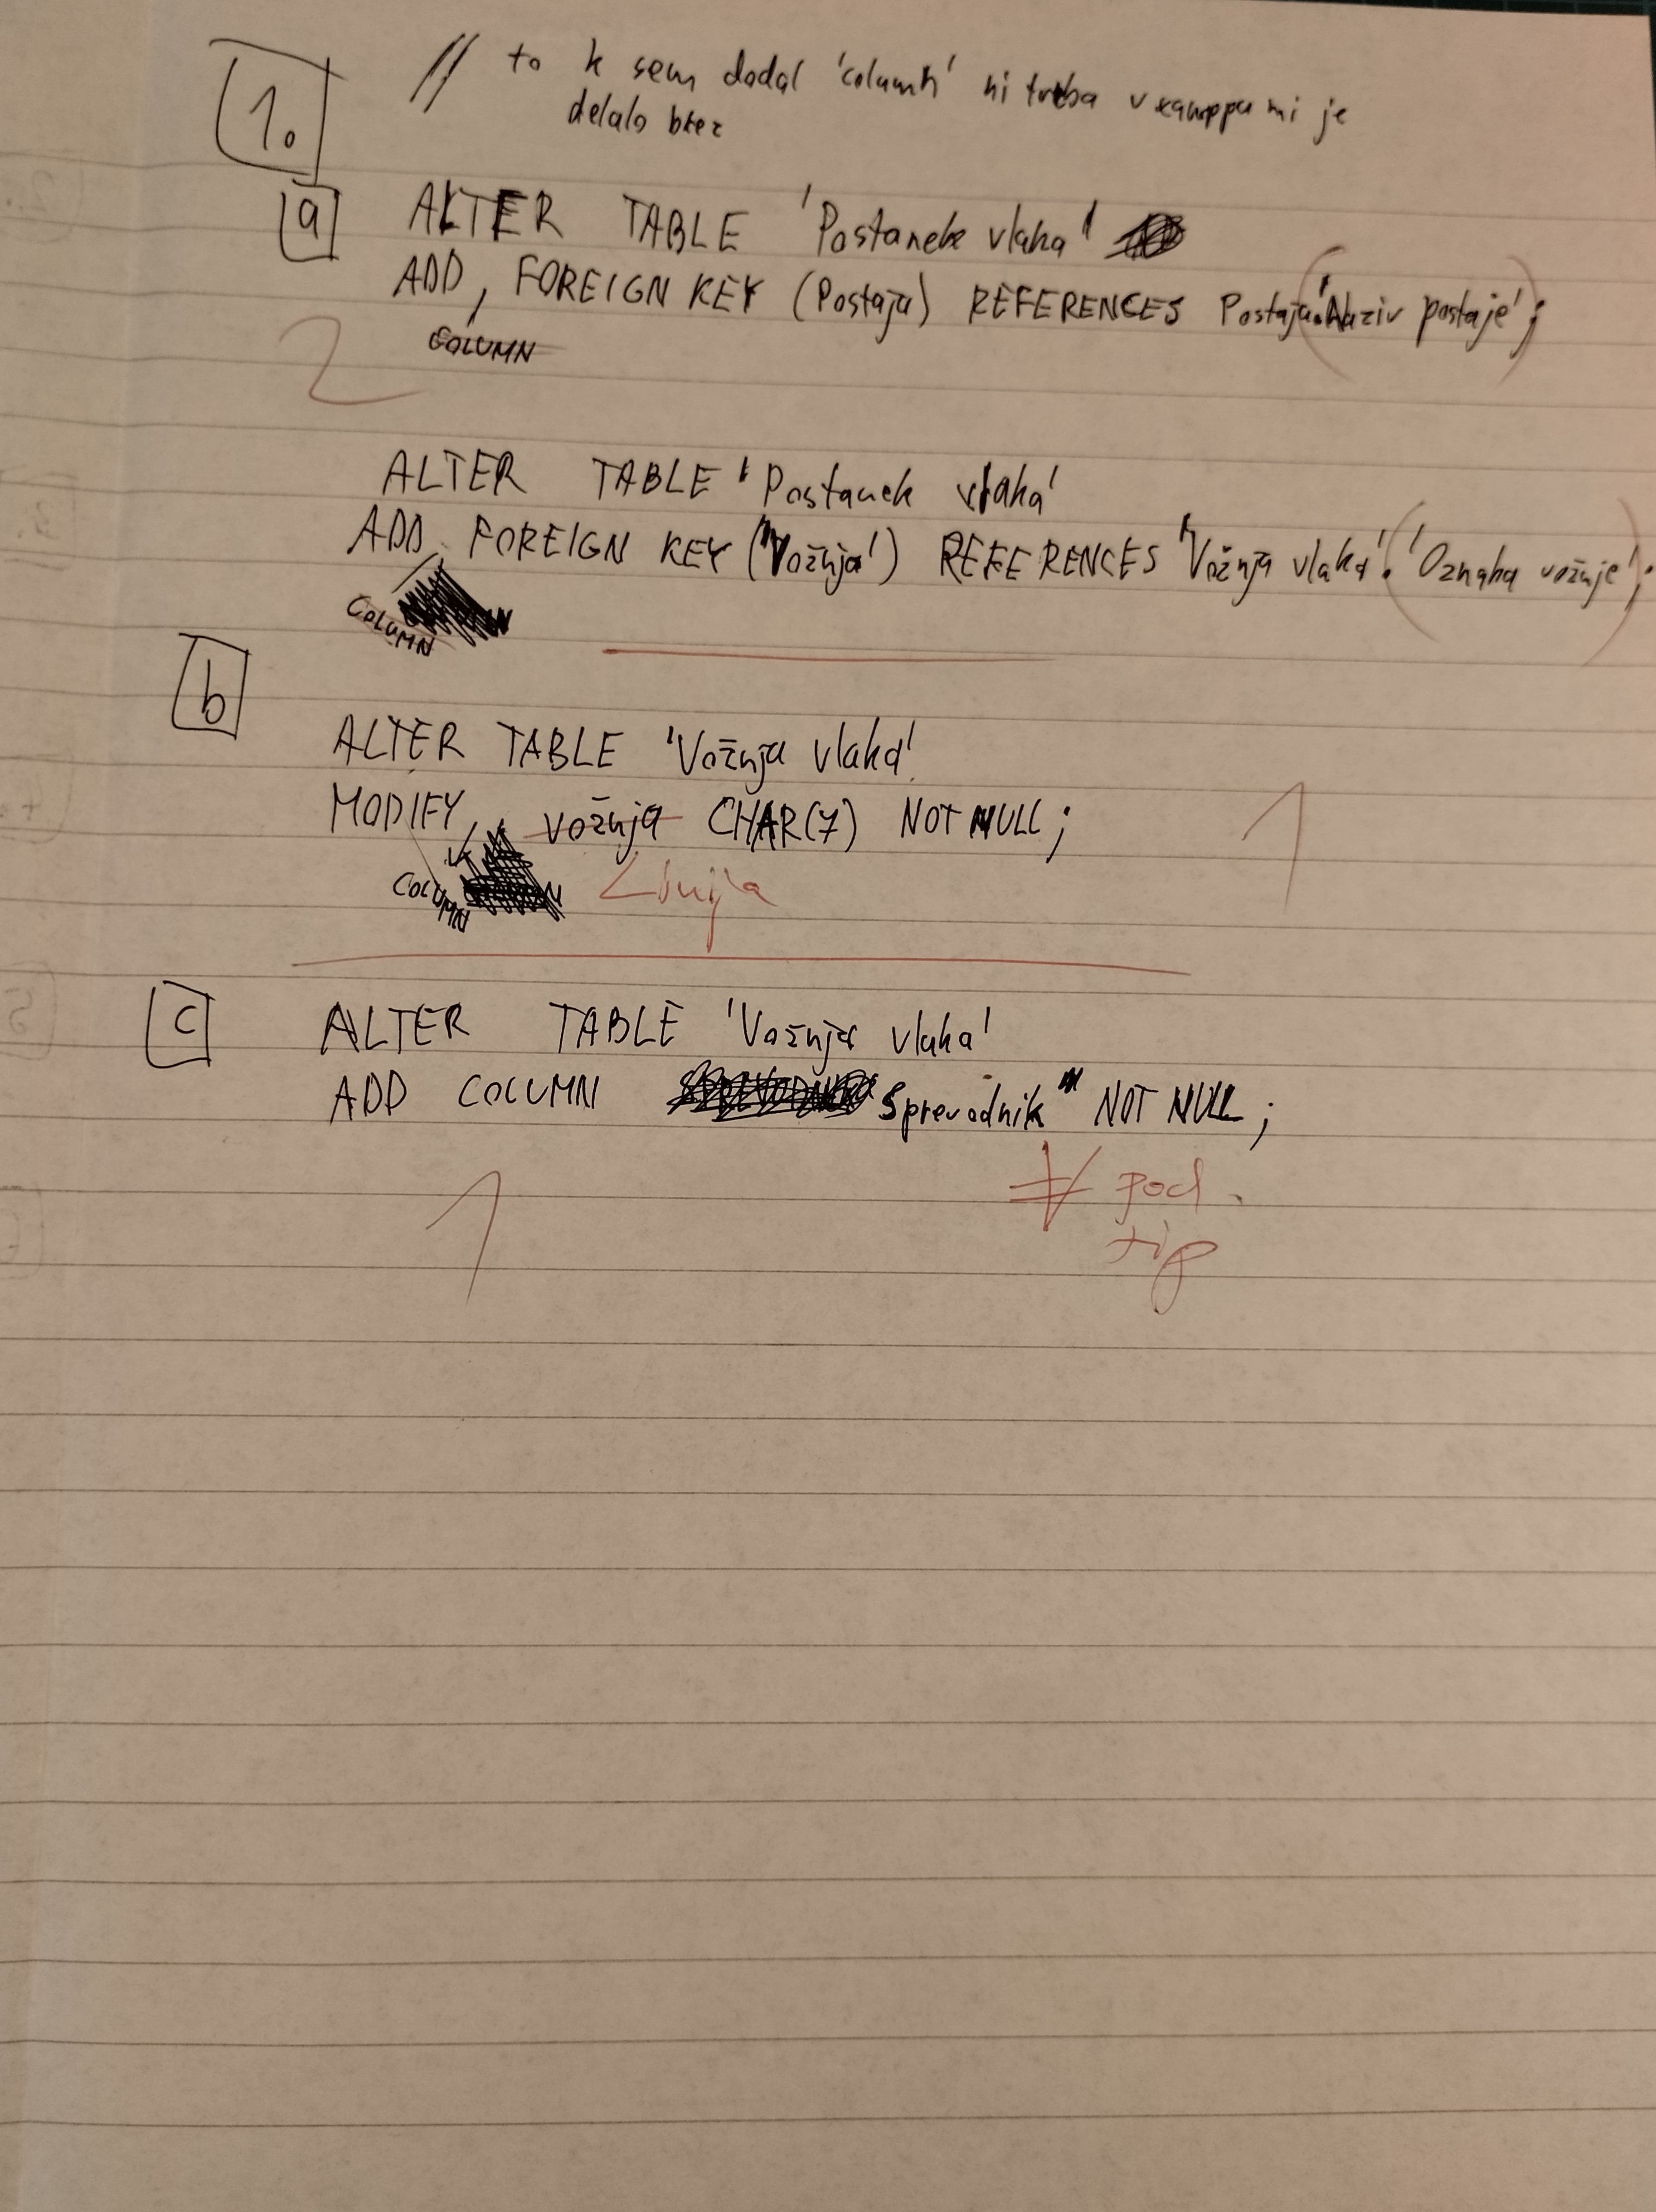 1.
// to k sem dodal 'column' ni treba v xamppu mi je
delalo brez
a ALTER TABLE 'Postanek vlaka'
ADD, FOREIGN KEY (Postaja) REFERENCES Postaja.('Naziv postaje');
COLUMN
2
ALTER TABLE 'Postanek vlaka'
ADD FOREIGN KEY ('Vožnja') REFERENCES 'Vožnja vlaka'.('Oznaka vožnje');
COLUMN
b
ALTER TABLE 'Vožnja vlaka'
MODIFY vožnja CHAR(7) NOT NULL;
COLUMN Linija
1
c ALTER TABLE 'Vožnja vlaka'
ADD COLUMN Sprevodnik" NOT NULL;
1
pod.
tip